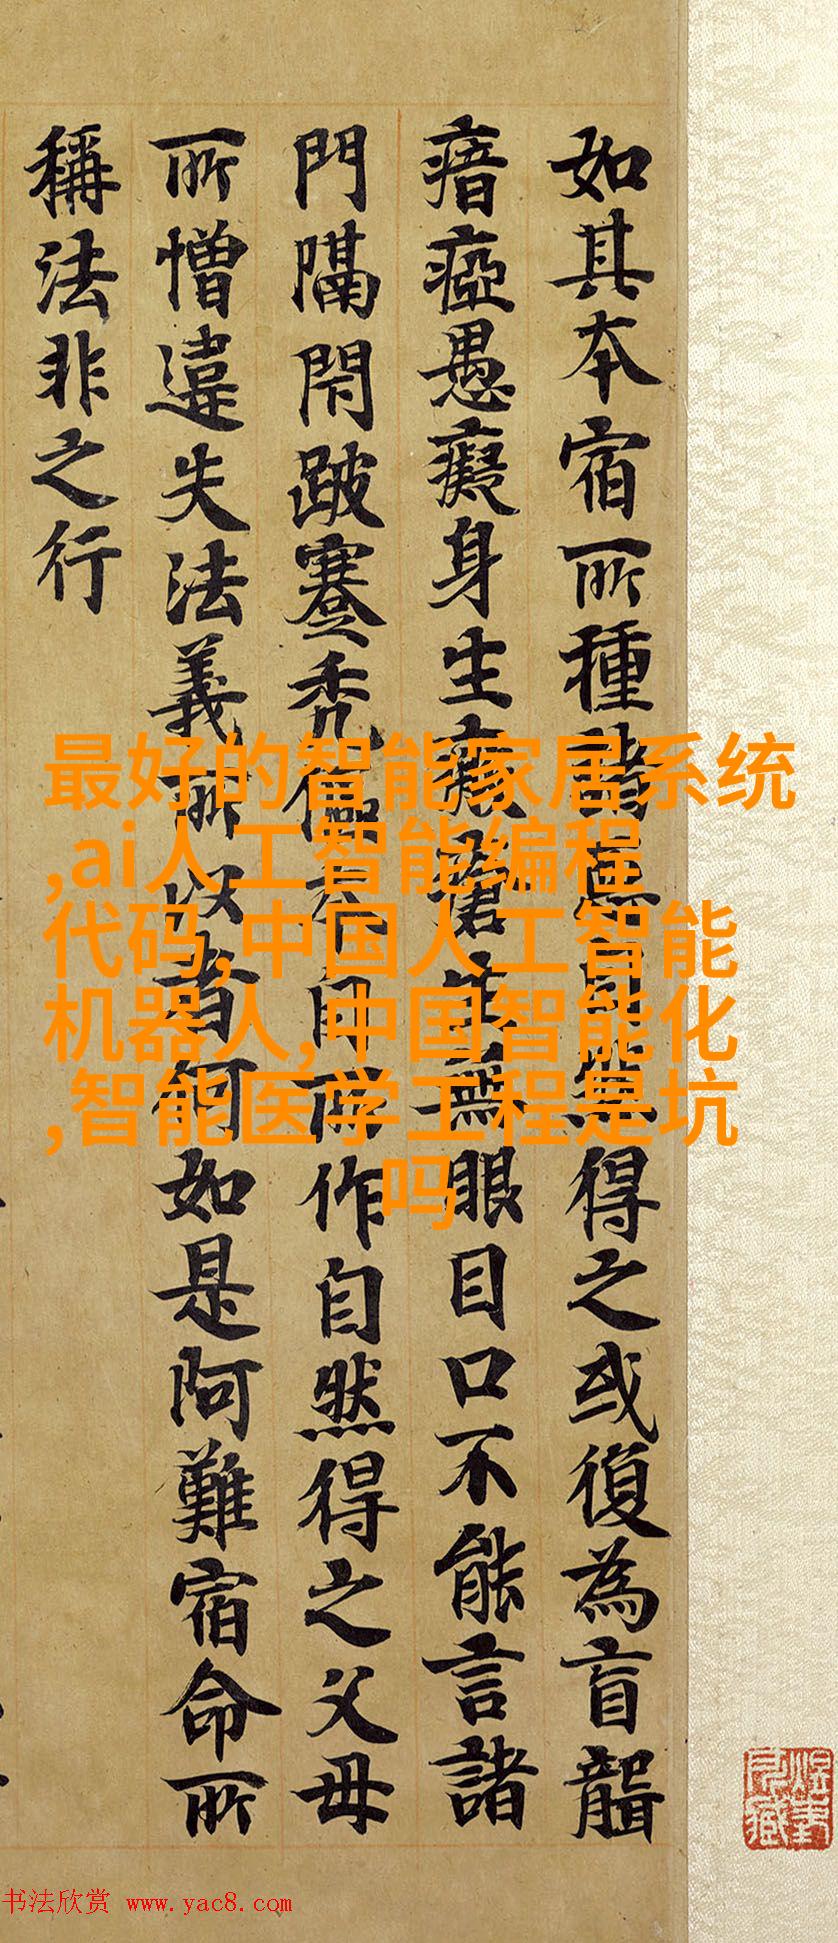 如其本宿所種諸惡自然得之或復為盲聾
瘖瘂愚癡身生瘡生無眼目口不能言諸
門隔閇跛蹇禿傴本自所作自然得之父母
所憎違失法義所以者何如是阿難宿命所
稱法非之行
最好的智能家居系统
,ai人工智能编程
代码,中国人工智能
机器人,中国智能化
,智能医学工程是坑
吗
书法欣赏 www.yac8.com